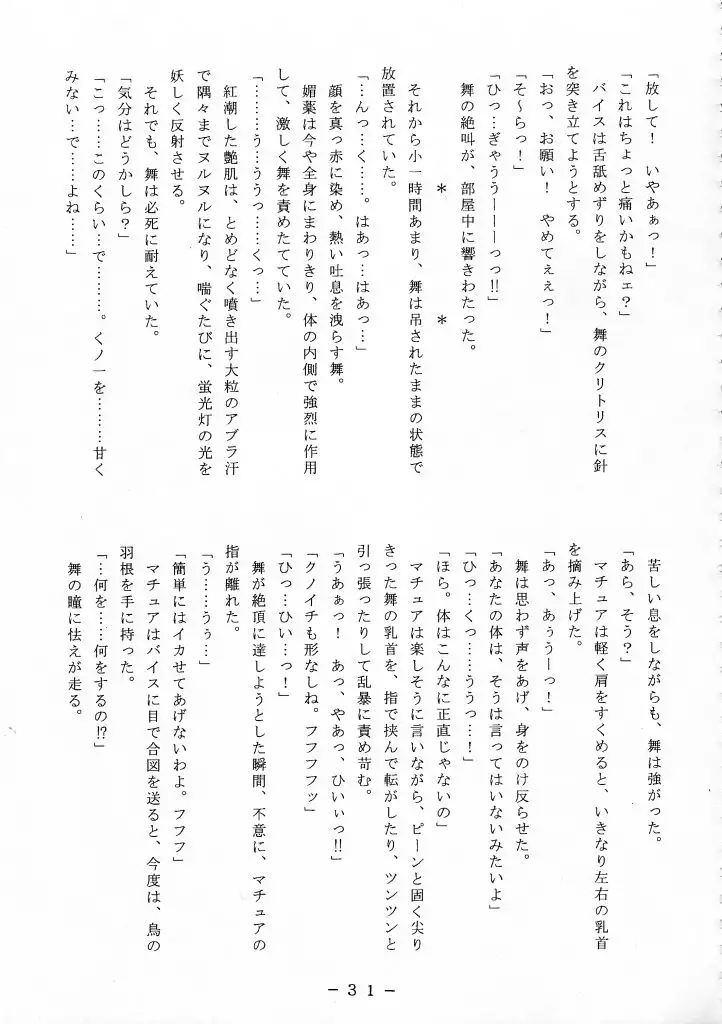 「放して！　いやあぁっ！」
「これはちょっと痛いかもねェ？」
バイスは舌舐めずりをしながら、舞のクリトリスに針
を突き立てようとする。
「おっ、お願い！　やめてぇぇっ！」
「そ～らっ！」
「ひっ…ぎゃううーーーっっ!!」
舞の絶叫が、部屋中に響きわたった。
＊　　　＊
それから小一時間あまり、舞は吊されたままの状態で
放置されていた。
「…んっ…く……。はあっ…はあっ…」
顔を真っ赤に染め、熱い吐息を洩らす舞。
媚薬は今や全身にまわりきり、体の内側で強烈に作用
して、激しく舞を責めたてていた。
「………う…ううっ……くっ…」
紅潮した艶肌は、とめどなく噴き出す大粒のアブラ汗
で隅々までヌルヌルになり、喘ぐたびに、蛍光灯の光を
妖しく反射させる。
それでも、舞は必死に耐えていた。
「気分はどうかしら？」
「こっ……このくらい…で………。くノ一を………甘く
みない…で……よね……」
苦しい息をしながらも、舞は強がった。
「あら、そう？」
マチュアは軽く肩をすくめると、いきなり左右の乳首
を摘み上げた。
「あっ、あぅうーっ！」
舞は思わず声をあげ、身をのけ反らせた。
「あなたの体は、そうは言ってはいないみたいよ」
「ひっ…くっ……ううっ…！」
「ほら。体はこんなに正直じゃないの」
マチュアは楽しそうに言いながら、ピーンと固く尖り
きった舞の乳首を、指で挟んで転がしたり、ツンツンと
引っ張ったりして乱暴に責め苛む。
「うあぁっ！　あっ、やあっ、ひいぃっ!!」
「クノイチも形なしね。フフフフッ」
「ひっ…ひい…っ！」
舞が絶頂に達しようとした瞬間、不意に、マチュアの
指が離れた。
「う……うぅ…」
「簡単にはイカせてあげないわよ。フフフ」
マチュアはバイスに目で合図を送ると、今度は、鳥の
羽根を手に持った。
「…何を……何をするの!?」
舞の瞳に怯えが走る。
－３１－